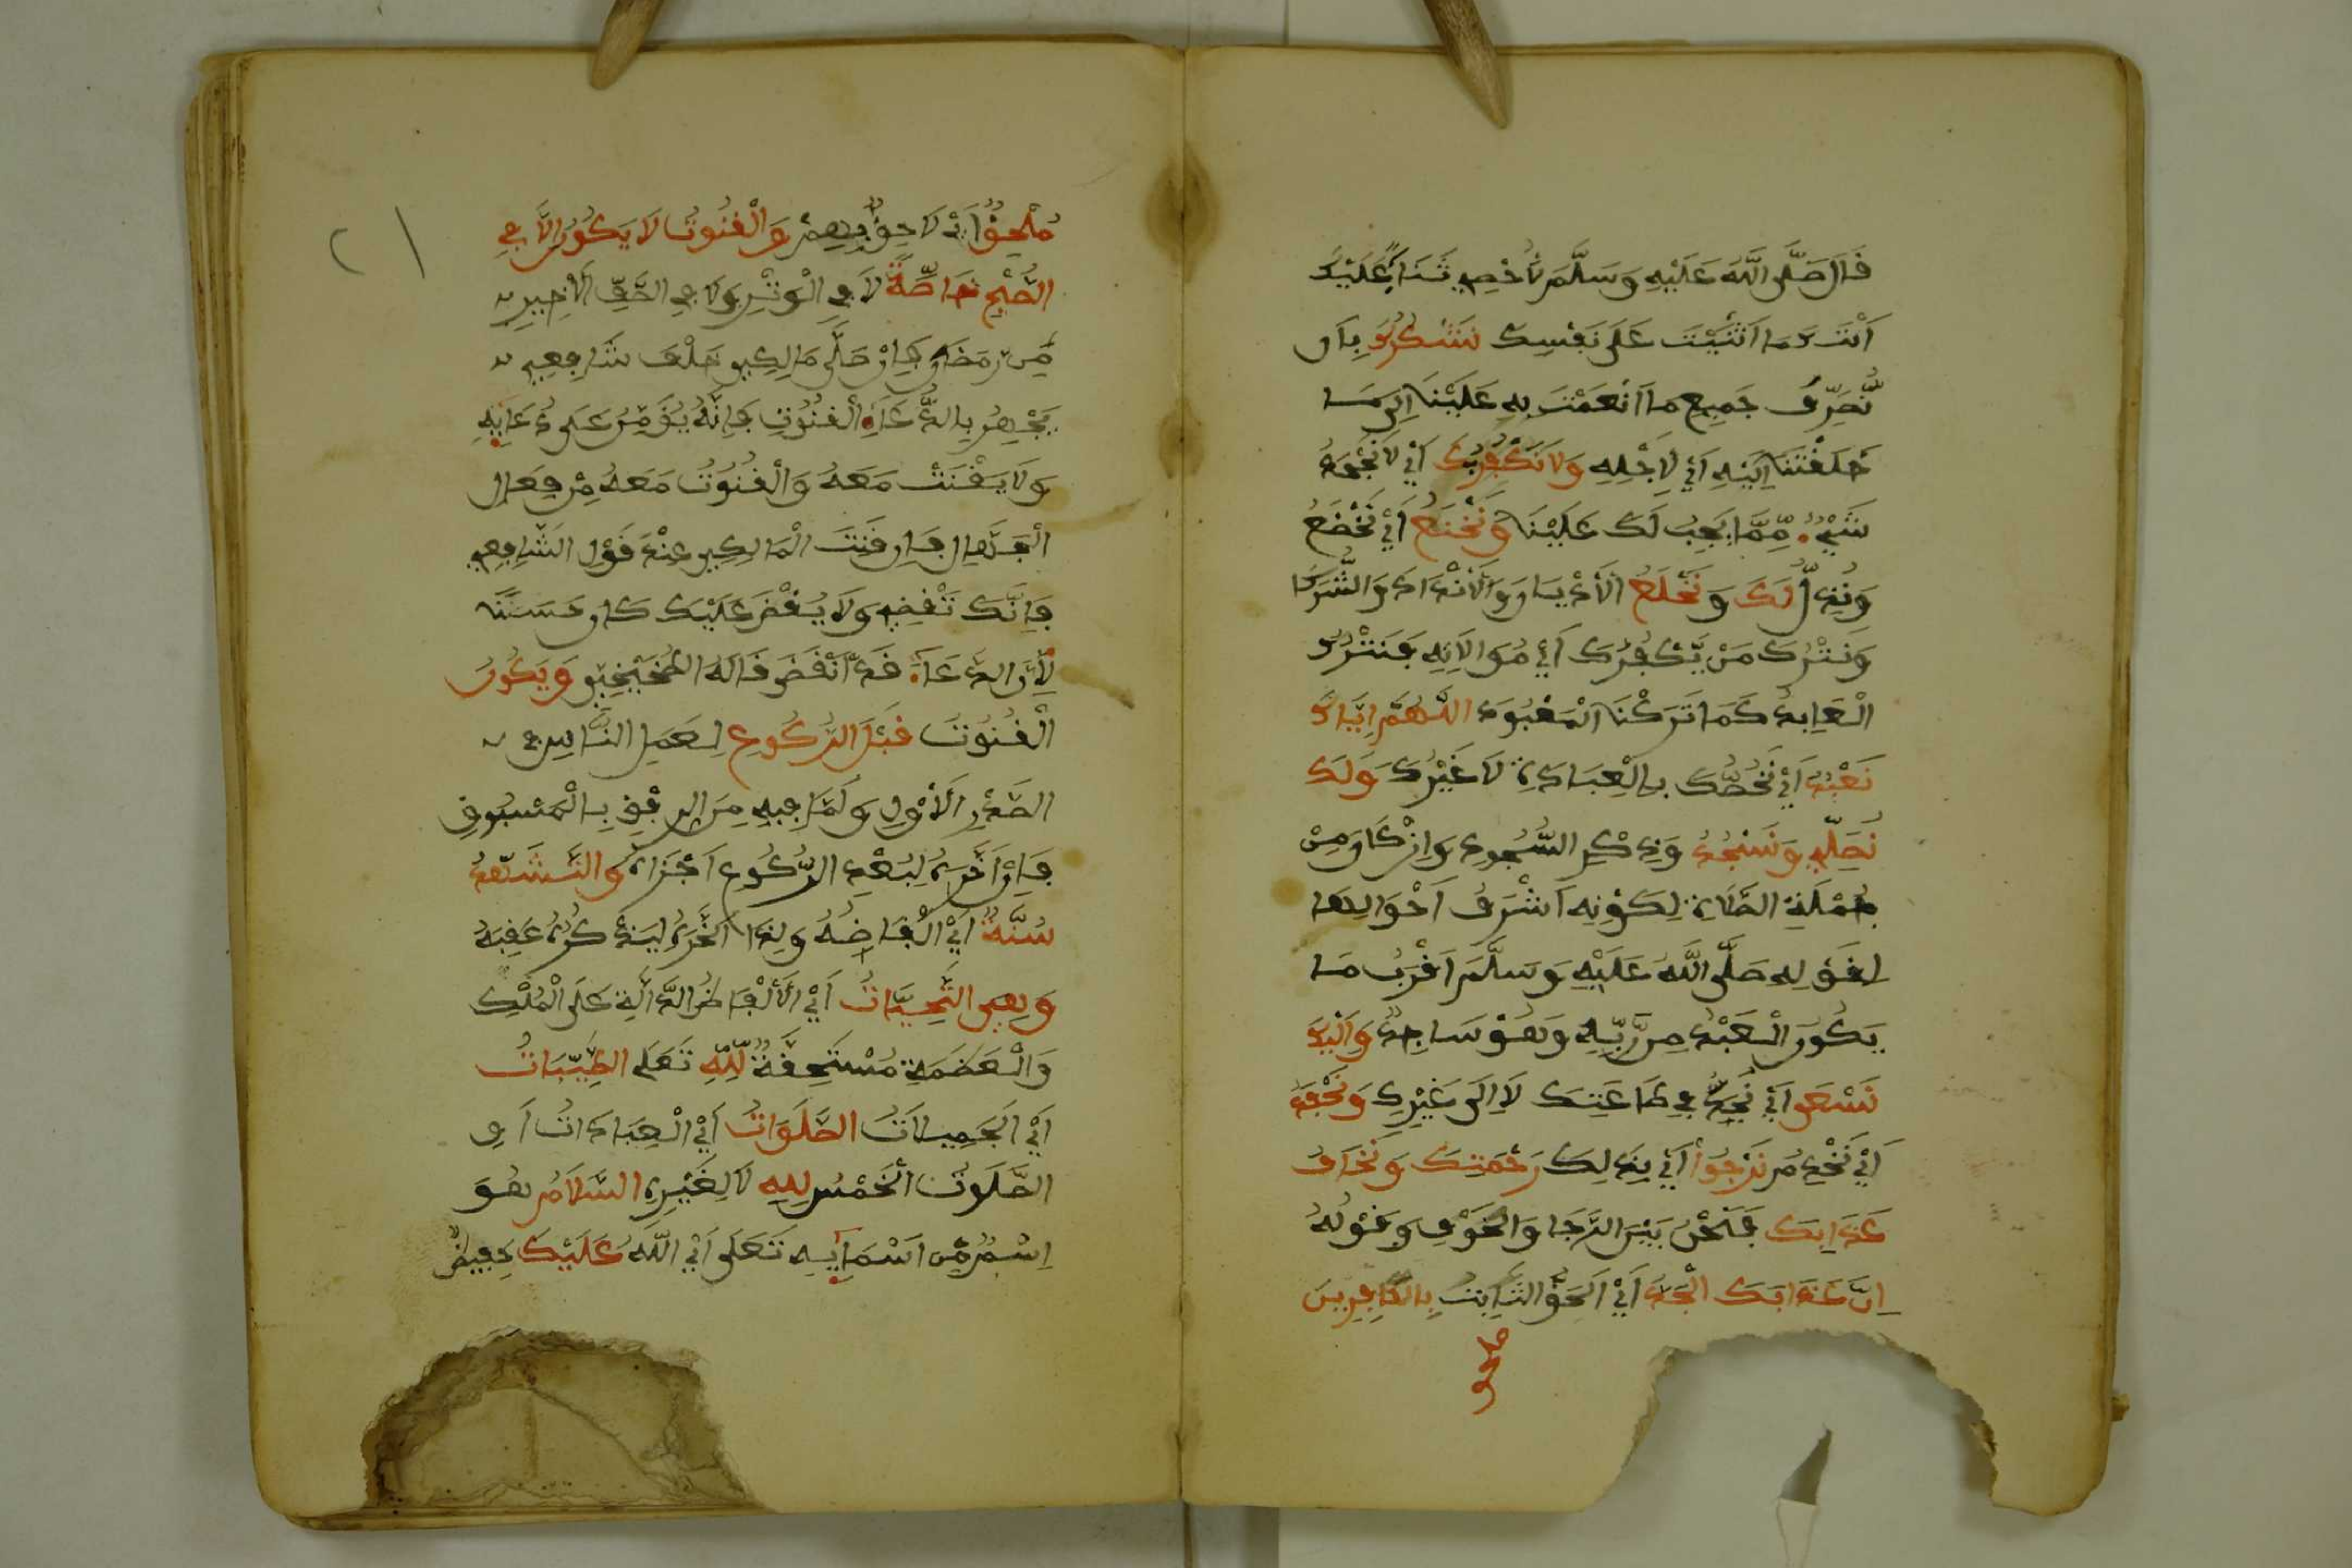 قَالَ صَلَّى اللَّهُ عَلَيْهِ وَسَلَّمَ لَا أُحْصِي ثَنَاءً عَلَيْكَ
أَنْتَ كَمَا أَثْنَيْتَ عَلَى نَفْسِكَ نَشْكُرُكَ بِأَن
نُّصَرِّفَ جَمِيعَ مَا أَنْعَمْتَ بِهِ عَلَيْنَا إِلَى مَا
خَلَقْتَنَا إِلَيْهِ أَيْ لِأَجْلِهِ وَلَا نَكْفُرُكَ أَيْ لَا نَجْحَدُ
شَيْءٌ مِّمَّا يَجِبُ لَكَ عَلَيْنَا وَنَخْنَعُ أَيْ نَخْضَعُ
وَنُذِلُّ لَكَ وَنَخْلَعُ الْأَدْيَانَ وَالْأَنْدَادَ وَالشُّرَكَا
وَنَتْرُكَ مَنْ يَّكْفُرُكَ أَيْ مُوَالَاتِهِ فَنَتْرُكُ
الْعَابِدَ كَمَا تَرَكْنَا الْمَعْبُودَ اللَّهُمَّ إِيَّاكَ
نَعْبُدُ أَيْ نَخُصُّكَ بِالْعِبَادَةِ لَا غَيْرُكَ وَلَكَ
نُصَلِّي وَنَسْجُدُ وَذِكْرِ السُّجُودِ وَإِنْ كَانَ مِنْ
جُمْلَةِ الصَّلَاةِ لِكَوْنِهِ أَشْرَفُ أَحْوَالِهَا
لِقَوْلِهِ صَلَّى اللَّهُ عَلَيْهِ وَسَلَّمَ أَقْرَبُ مَا
يَكُونُ الْعَبْدُ مِن رَّبِّهِ وَهُوَ سَاجِدٌ وَإِلَيْكَ
نَسْعَى أَيْ نُجِدُّ فِي طَاعَتِكَ لَا إِلَى غَيْرِكَ وَنَحْفِدُ
أَيْ نَخْدِمُ نَرْجُوا أَيْ بِذَلِكَ رَحْمَتَكَ وَنَخَافُ
عَذَابَكَ فَنَحْنُ بَيْنَ الرَّجَا وَالْخَوْفِ وَقَوْلُهُ
إِنَّ عَذَابَكَ الْجِدَّ أَيْ الْحَقُّ الثَّابِتُ بِالْكَافِرِينَ
٢١
مُلْحِقٌ أَيْ لَاحِقٌ بِهِمْ وَالْقُنُوتُ لَا يَكُونُ إِلَّا فِي
الصُّبْحِ خَاصَّةً لَا فِي الْوَتْرِ وَلَا فِي النِّصْفِ الْأَخِيرِ
مِن رَمَضَانَ فَإِنْ صَلَّى مَالِكِي خَلْفَ شَافِعِي
يَجْهَرُ بِالدُّعَاءِ الْقُنُوتِ فَإِنَّهُ يُؤَمِّنُ عَلَى دُعَائِهِ
وَلَا يَقْنُتْ مَعَهُ وَالْقُنُوتُ مَعَهُ مِنْ فِعَالِ
الْجَهَّالِ فَإِن قَنَتَ الْمَالِكِي عِنْدَ قَوْلِ الشَّافِعِي
فَإِنَّكَ تَقْضِي وَلَا يُقْضَى عَلَيْكَ كَانَ حَسَنًا
لِأَنَّ الدُّعَاءَ قَدْ انْقَضَى قَالَهُ وَيَكُونُ
الْقُنُوتُ قَبْلَ الرُّكُوعِ لِعَمَلِ النَّاسِ فِي
الصَّدْرِ الْأَوَّلِ وَلِمَا فِيهِ مِنَ الرِّفْقِ بِالْمَسْبُوقِ
فَإِنْ أَخَّرَهُ لِبُعْدِ الرُّكُوعِ أَجْزَأَهُ وَالتَّشَهُّدُ
سُنَّةٌ أَيْ أَلْفَاظُهُ وَلِذَا أَخَّرَهُ لِيَذْكُرَهُ عَقِبَهُ
وَهِيَ التَّحِيَّاتُ أَيْ الْأَلْفَاظُ الدَّالَّةِ عَلَى الْمُلْكِ
وَالْعَظَمَةِ مُسْتَحِقَّةٌ لِلَّهِ تَعَلَى الطَّيِّبَاتُ
أَيْ الْجَمِيلَاتُ الصَّلَوَاتُ أَيْ الْعِبَادَاتُ أَوِ
الصَّلَوَاتُ الْخَمْسُ لِلهِ لَا لِغَيْرِهِ السَّلَامُ هُوَ
اسْمٌ مِّنْ أَسْمَائِهِ تَعَلَى أَيْ اللَّهُ عَلَيْكَ حَفِيظٌ